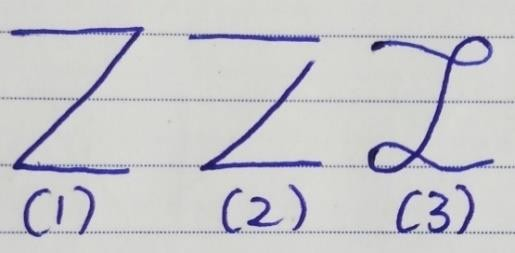 Z Z Z
(1) (2) (3)